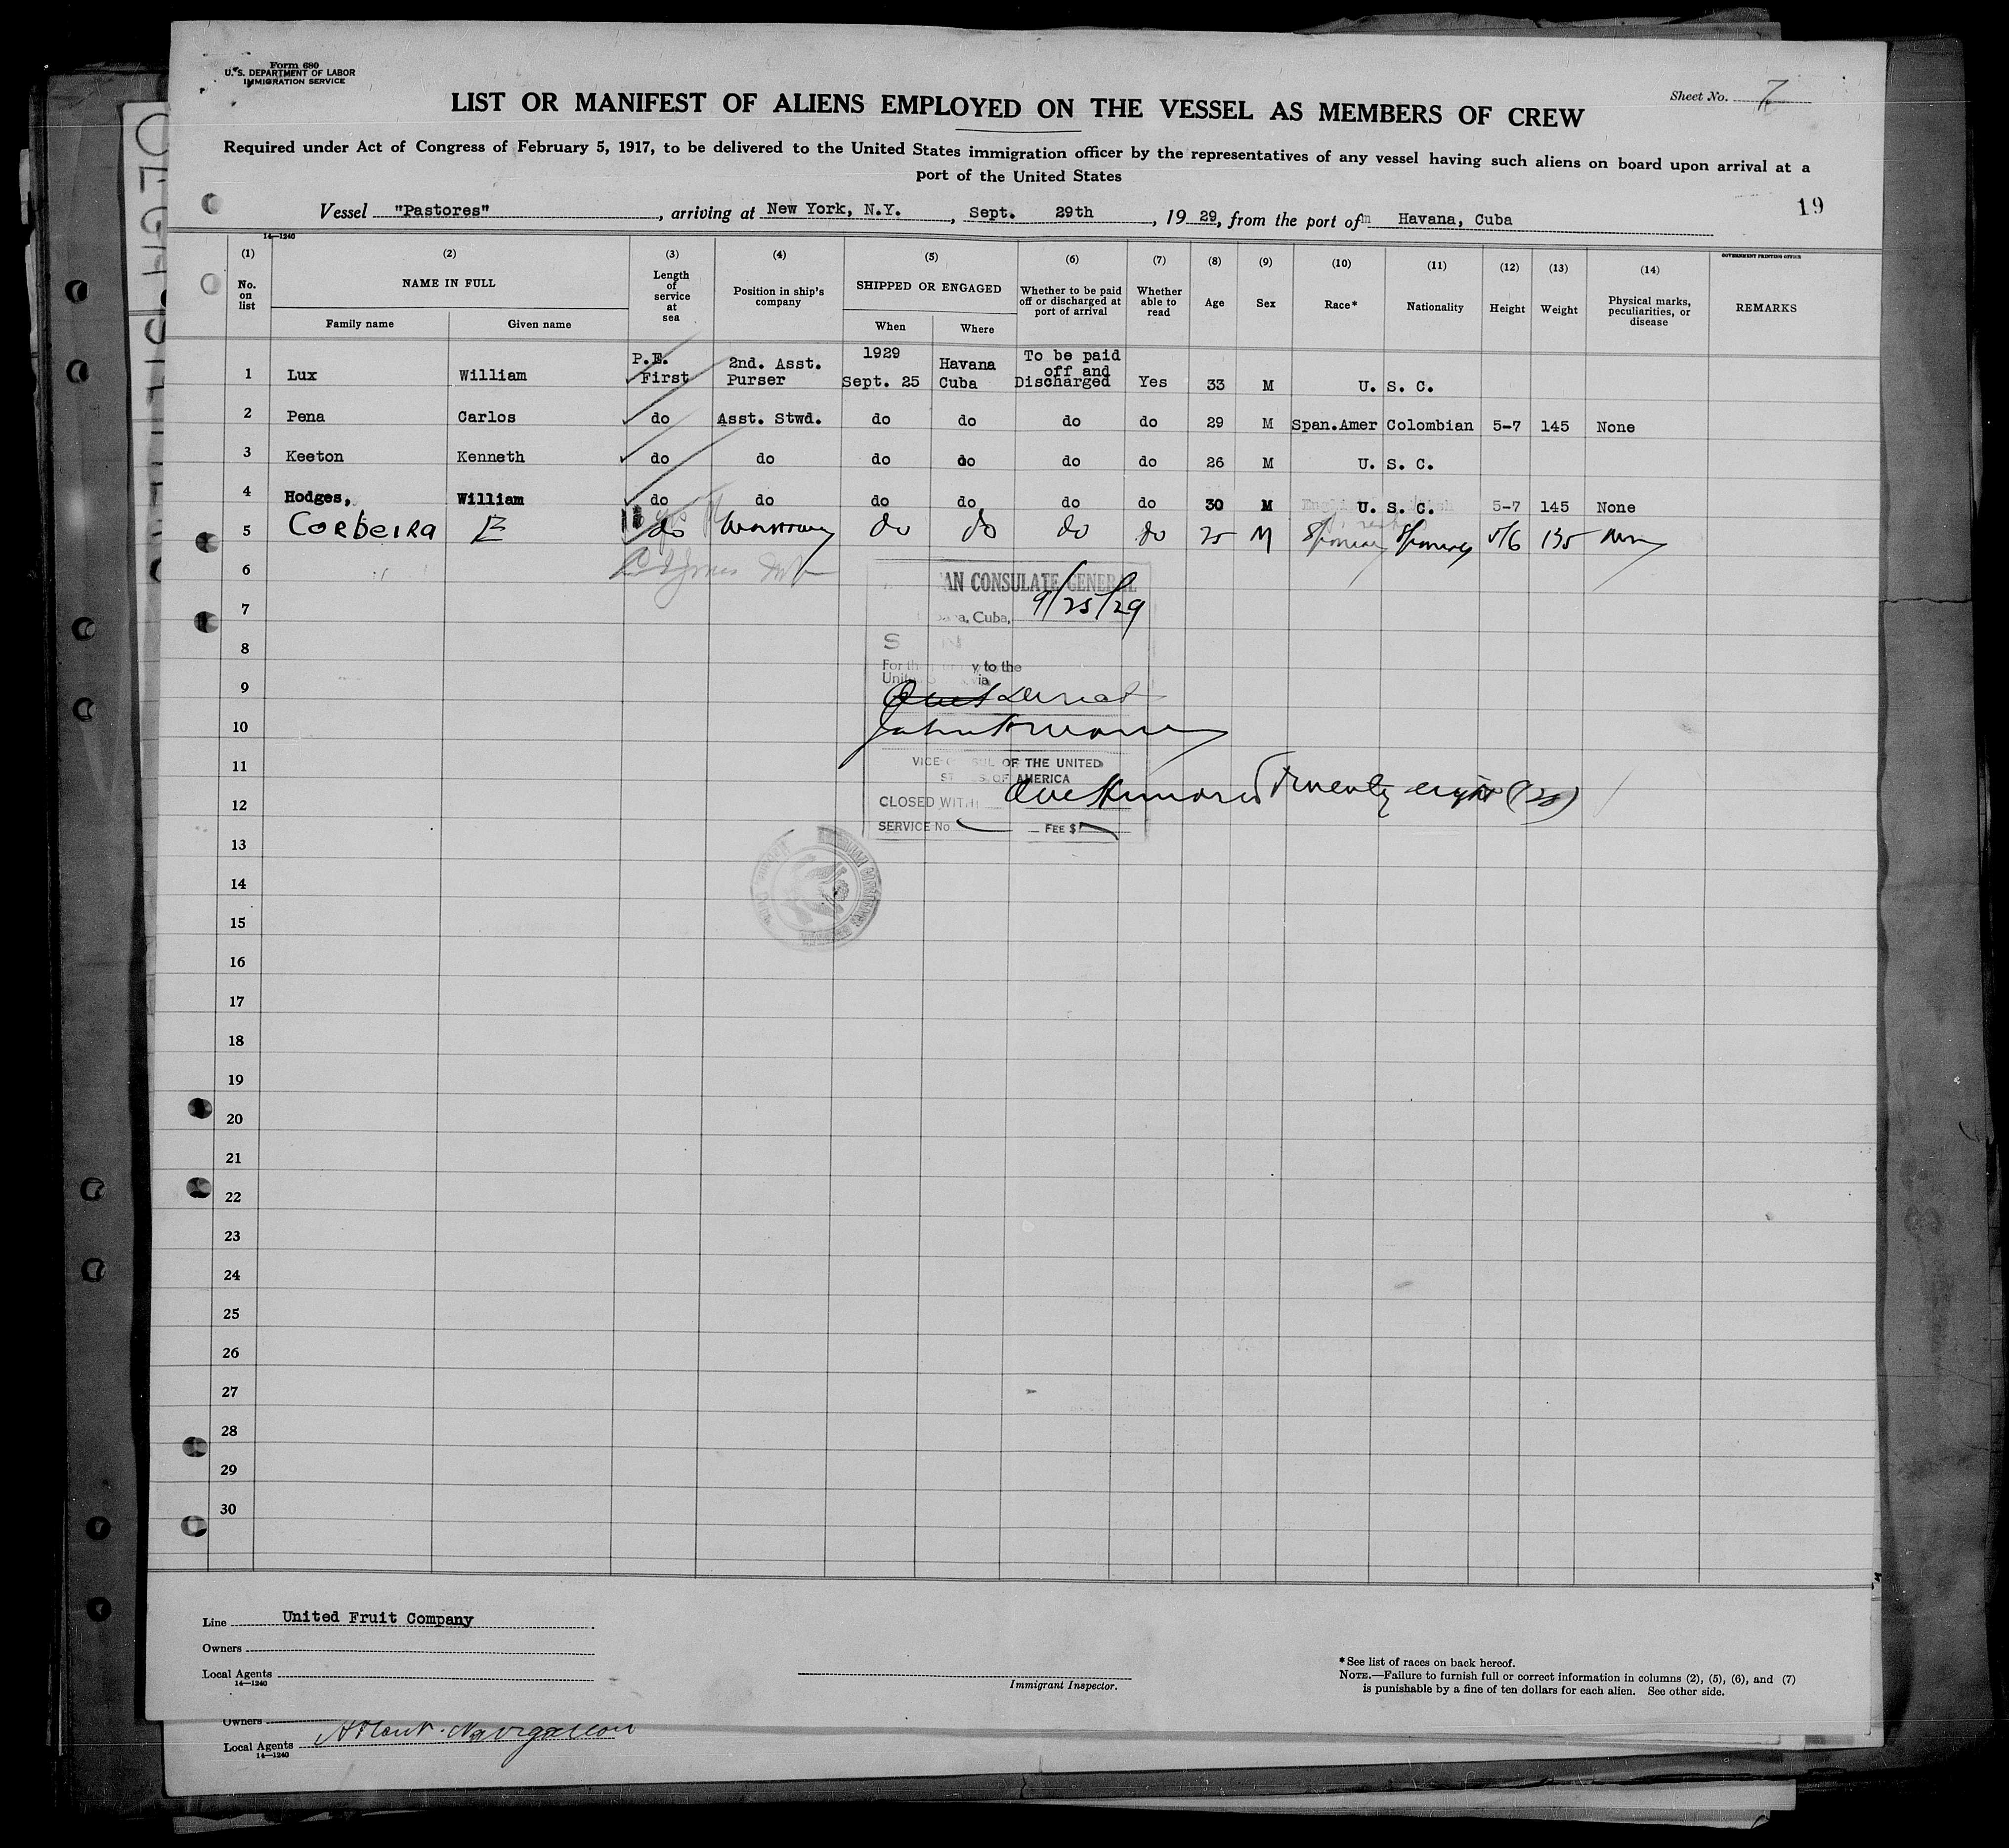 Form 680
U. S. DEPARTMENT OF LABOR
IMMIGRATION SERVICE
Sheet No. 7
LIST OR MANIFEST OF ALIENS EMPLOYED ON THE VESSEL AS MEMBERS OF CREW
Required under Act of Congress of February 5, 1917, to be delivered to the United States immigration officer by the representatives of any vessel having such aliens on board upon arrival at a
port of the United States
19
Vessel "Pastores", arriving at New York, N.Y., Sept. 29th, 1929, from the port of Havana, Cuba
14—1240
GOVERNMENT PRINTING OFFICE
(1) (2) (3) (4) (5) (6) (7) (8) (9) (10) (11) (12) (13) (14)
No. on list NAME IN FULL Family name Given name Length of service at sea Position in ship's company SHIPPED OR ENGAGED When Where Whether to be paid off or discharged at port of arrival Whether able to read Age Sex Race* Nationality Height Weight Physical marks, peculiarities, or disease REMARKS
1 Lux William P.E. First 2nd. Asst. Purser 1929 Sept. 25 Havana Cuba To be paid off and Discharged Yes 33 M U. S. C.
2 Pena Carlos do Asst. Stwd. do do do do 29 M Span.Amer Colombian 5-7 145 None
3 Keeton Kenneth do do do do do do 26 M U. S. C.
4 Hodges, William do do do do do do 30 M U. S. C. 5-7 145 None
5 Corbeira E do do do do do 25 M 5/6 135
6
7
8
9
10
11
12
13
14
15
16
17
18
19
20
21
22
23
24
25
26
27
28
29
30
CONSULATE GENERAL
Cuba, 9/25/29
to the
VICE OF THE UNITED
OF AMERICA
CLOSED WITH One Hundred Twenty eight (128)
SERVICE No. FEE $
Line United Fruit Company
Owners
Local Agents
14—1240
Immigrant Inspector.
* See list of races on back hereof.
NOTE.—Failure to furnish full or correct information in columns (2), (5), (6), and (7)
is punishable by a fine of ten dollars for each alien. See other side.
Owners
Local Agents Navigation
14—1240